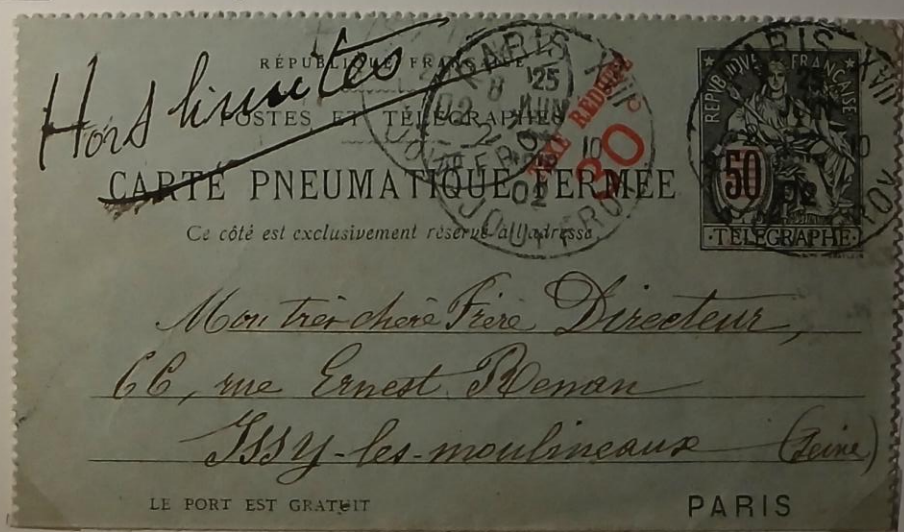 Hors limites
RÉPUBLIQUE FRANÇAISE
POSTES ET TÉLÉGRAPHES
CARTE PNEUMATIQUE FERMÉE
Ce côté est exclusivement réservé à l'adresse
PARIS XVII
25
JUIN
02
TAXE RÉDUITE
30c
REPUBLIQUE FRANÇAISE
50
TELEGRAPHE
PARIS XVII
25
Mon très cher Frère Directeur,
66, rue Ernest Renan
Issy-les-moulineaux (Seine)
LE PORT EST GRATUIT
PARIS